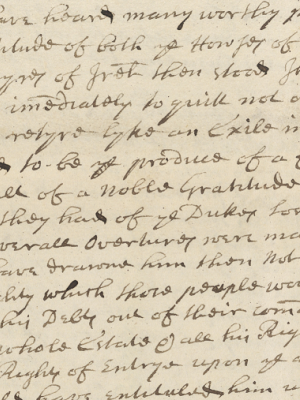 have heard many worthy p
titude of both ye Howses of
yres of Irel: then stood I
imediately to quitt not o
retyre lyke an Exile i
to be ye produce of a
all of a Noble Gratitude
they had of ye Dukes Lov
verall Overtures were ma
have drawne him then Not
lity which those people wo
his Debts out of their com
whole Estate & all his Rig
Rights of Entrye upon ye a
have entituled him u